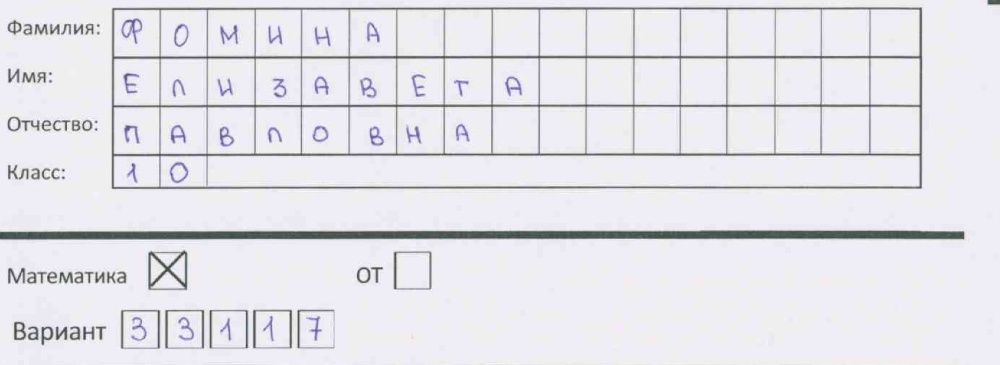 Фамилия: ФОМИНА
Имя: ЕЛИЗАВЕТА
Отчество: ПАВЛОВНА
Класс: 10
Математика ☒ ОТ ☐
Вариант 33117